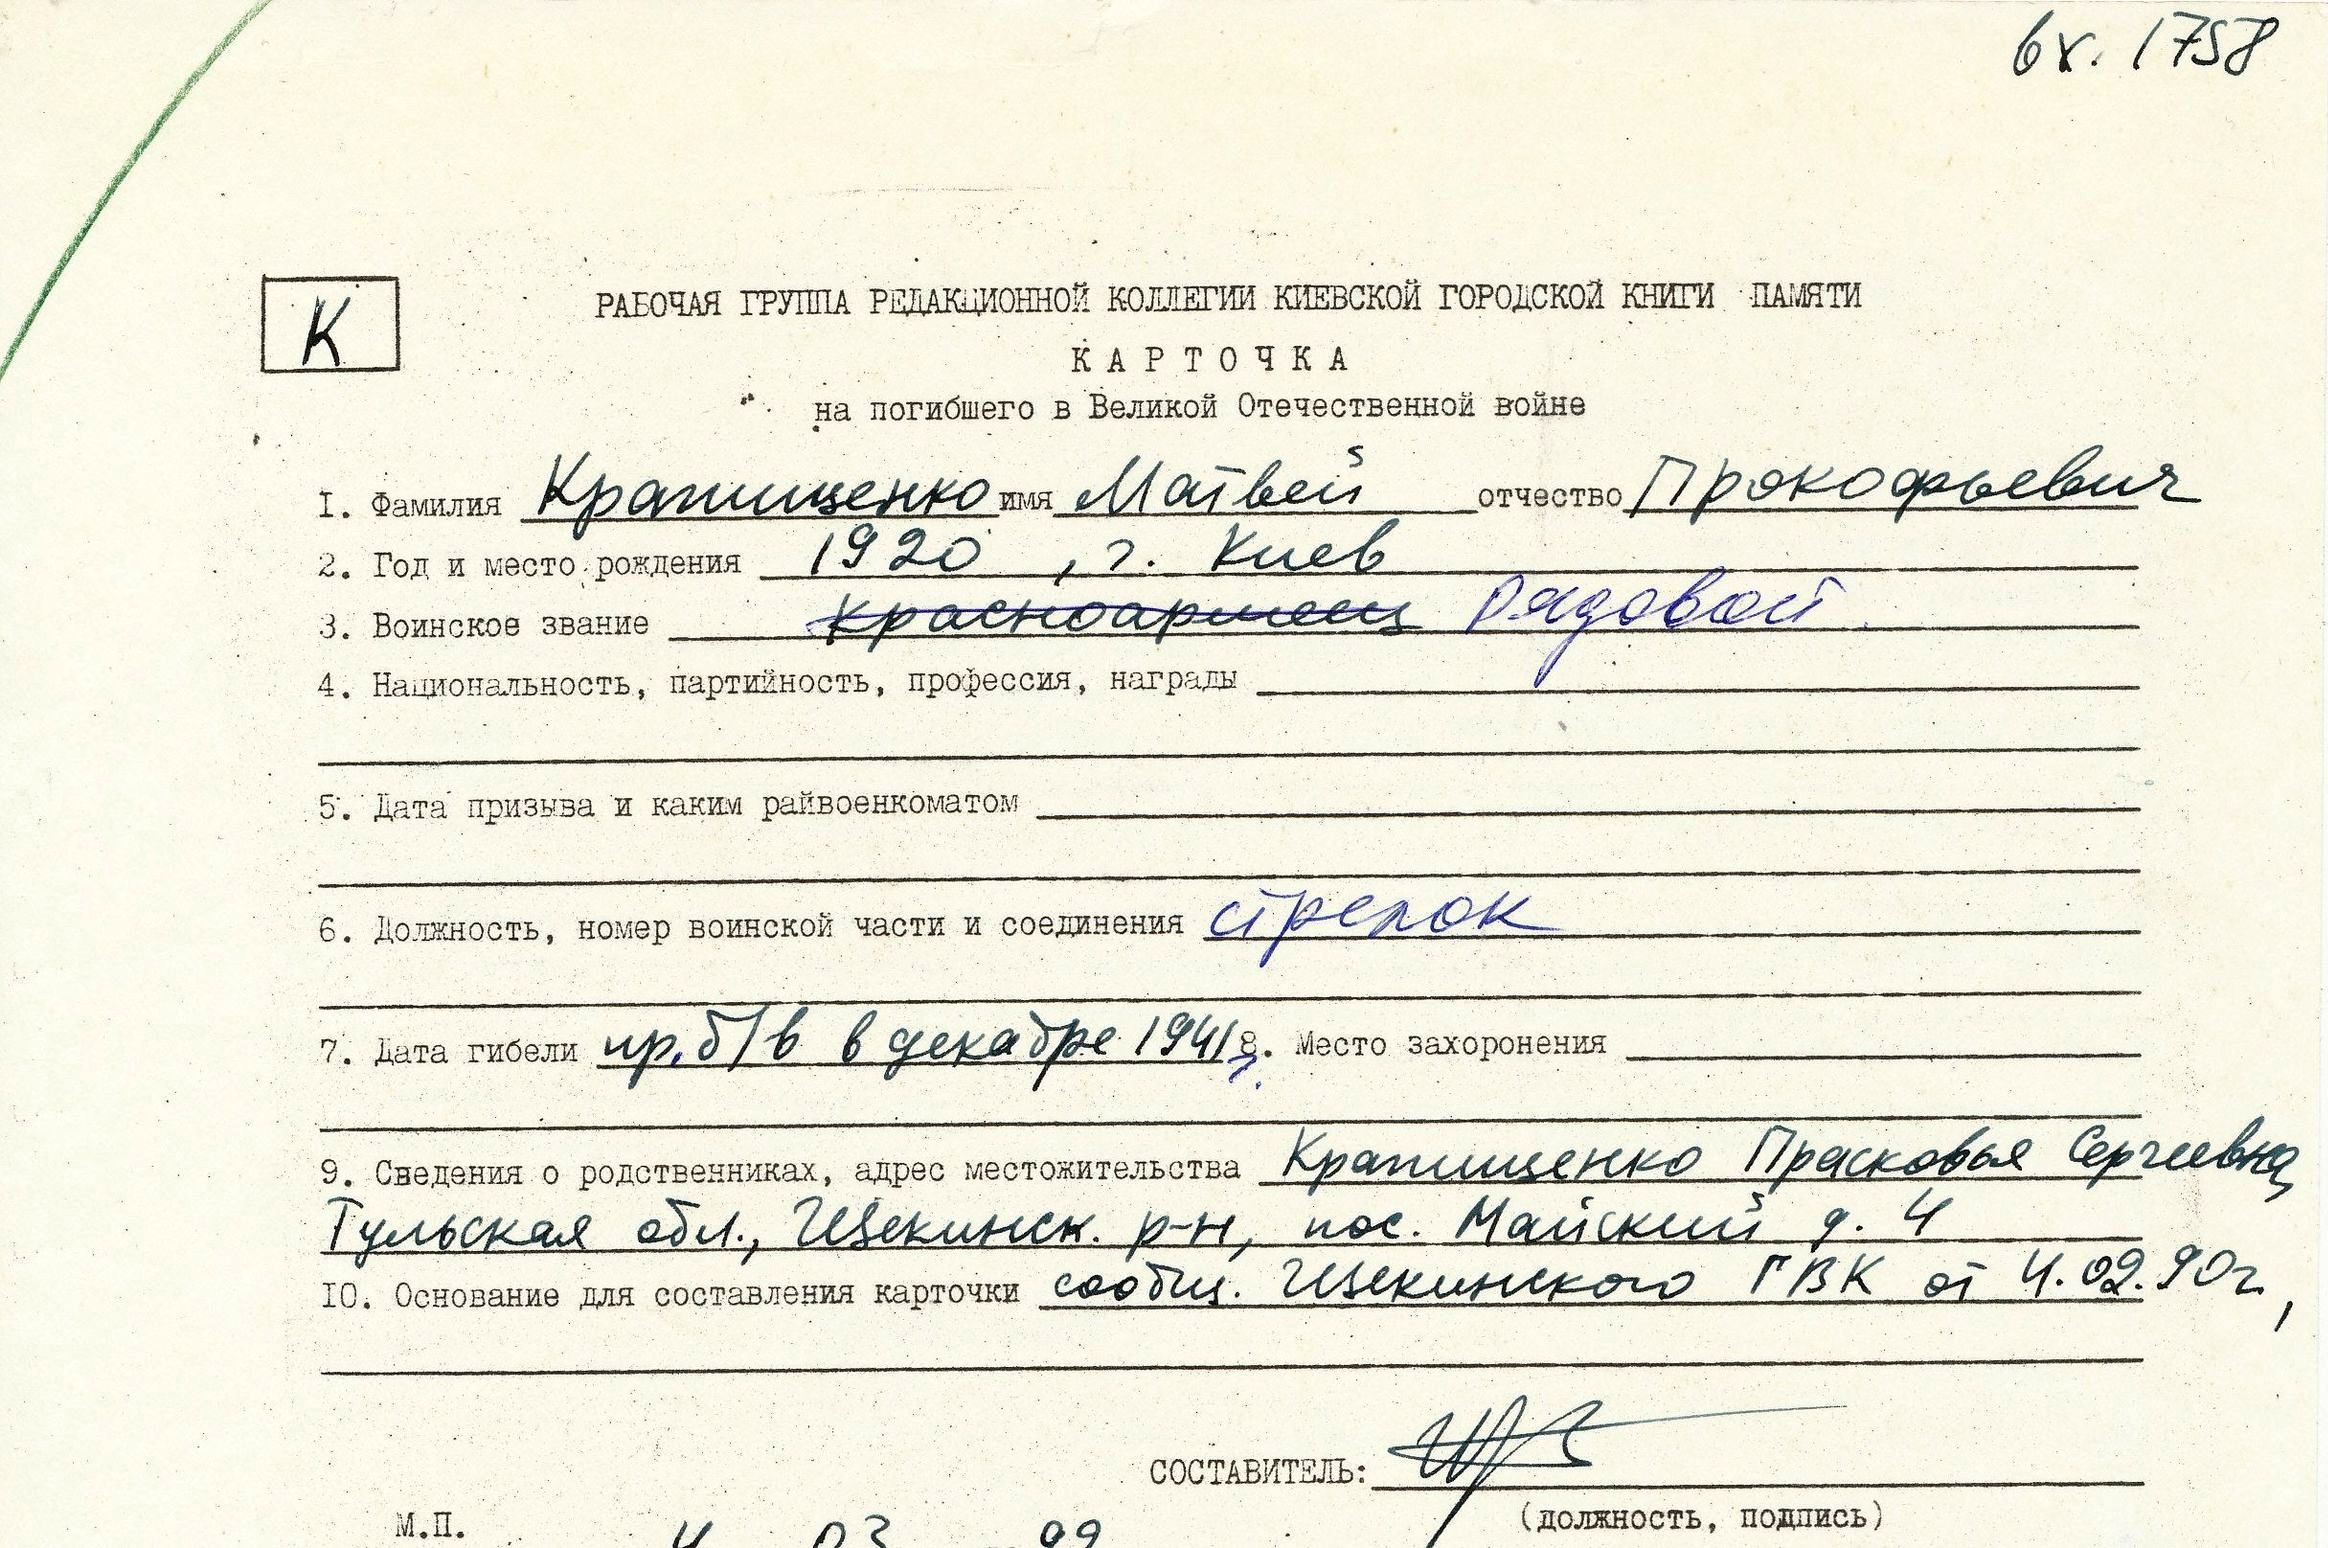 вх. 1758
К
РАБОЧАЯ ГРУППА РЕДАКЦИОННОЙ КОЛЛЕГИИ КИЕВСКОЙ ГОРОДСКОЙ КНИГИ ПАМЯТИ
К А Р Т О Ч К А
на погибшего в Великой Отечественной войне
I. Фамилия Крапищенко имя Матвей отчество Прокофьевич
2. Год и место рождения 1920 , г. Киев
3. Воинское звание красноармеец Рядовой
4. Национальность, партийность, профессия, награды
5. Дата призыва и каким райвоенкоматом
6. Должность, номер воинской части и соединения стрелок
7. Дата гибели пр. б/в в декабре 1941 г. 8. Место захоронения
9. Сведения о родственниках, адрес местожительства Крапищенко Прасковья Сергеевна,
Тульская обл., Щекинск. р-н, пос. Майский д. 4
IO. Основание для составления карточки сообщ. Щекинского ГВК от 4.02.90г,
СОСТАВИТЕЛЬ:
(должность, подпись)
М.П.